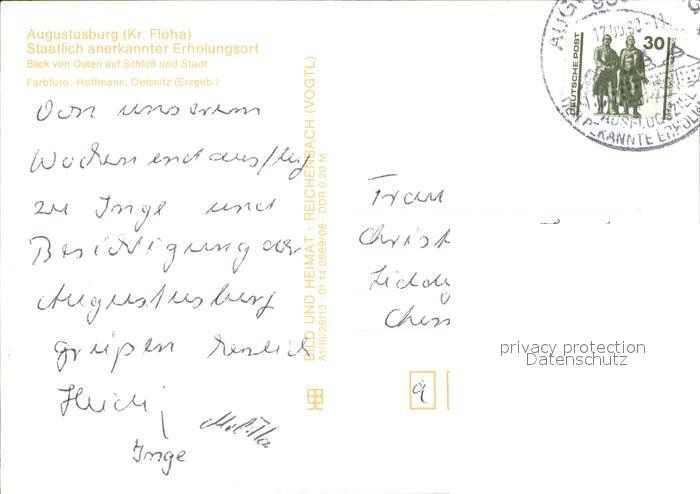 Augustusburg (Kr. Flöha)
Staatlich anerkannter Erholungsort
Blick von Osten auf Schloß und Stadt
Farbfoto: Hoffmann, Oelsnitz (Erzgeb.)
Von unserem
Wochenendausflug
zu Inge und
Besichtigung der
Augustusburg
grüßen herzlich
Heidi
Inge
BILD UND HEIMAT · REICHENBACH (VOGTL)
A1/III/26/13 · 01 14 0689/06 · DDR 0,20 M
DEUTSCHE POST
30
AUSFLUGSZIEL
Frau
Christ
Chem
9
privacy protection
Datenschutz